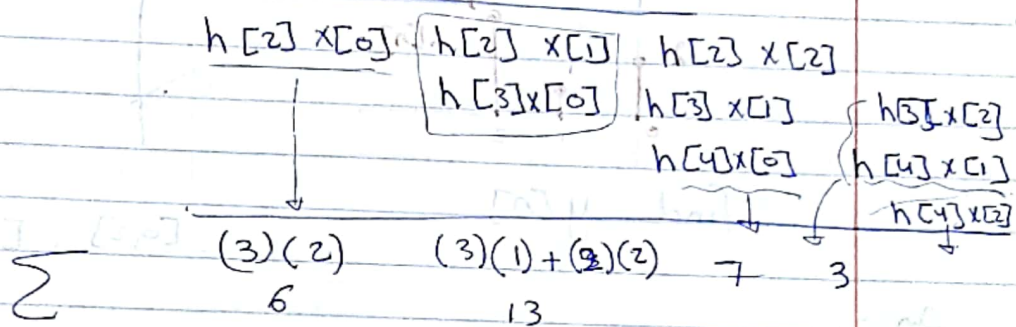 h[2] x[0] h[2] x[1] h[2] x[2]
h[3]x[0] h[3] x[1] h[3]x[2]
h[4]x[0] h[4] x[1]
h[4]x[2]
Σ (3)(2) (3)(1)+( )(2) 7 3
6 13